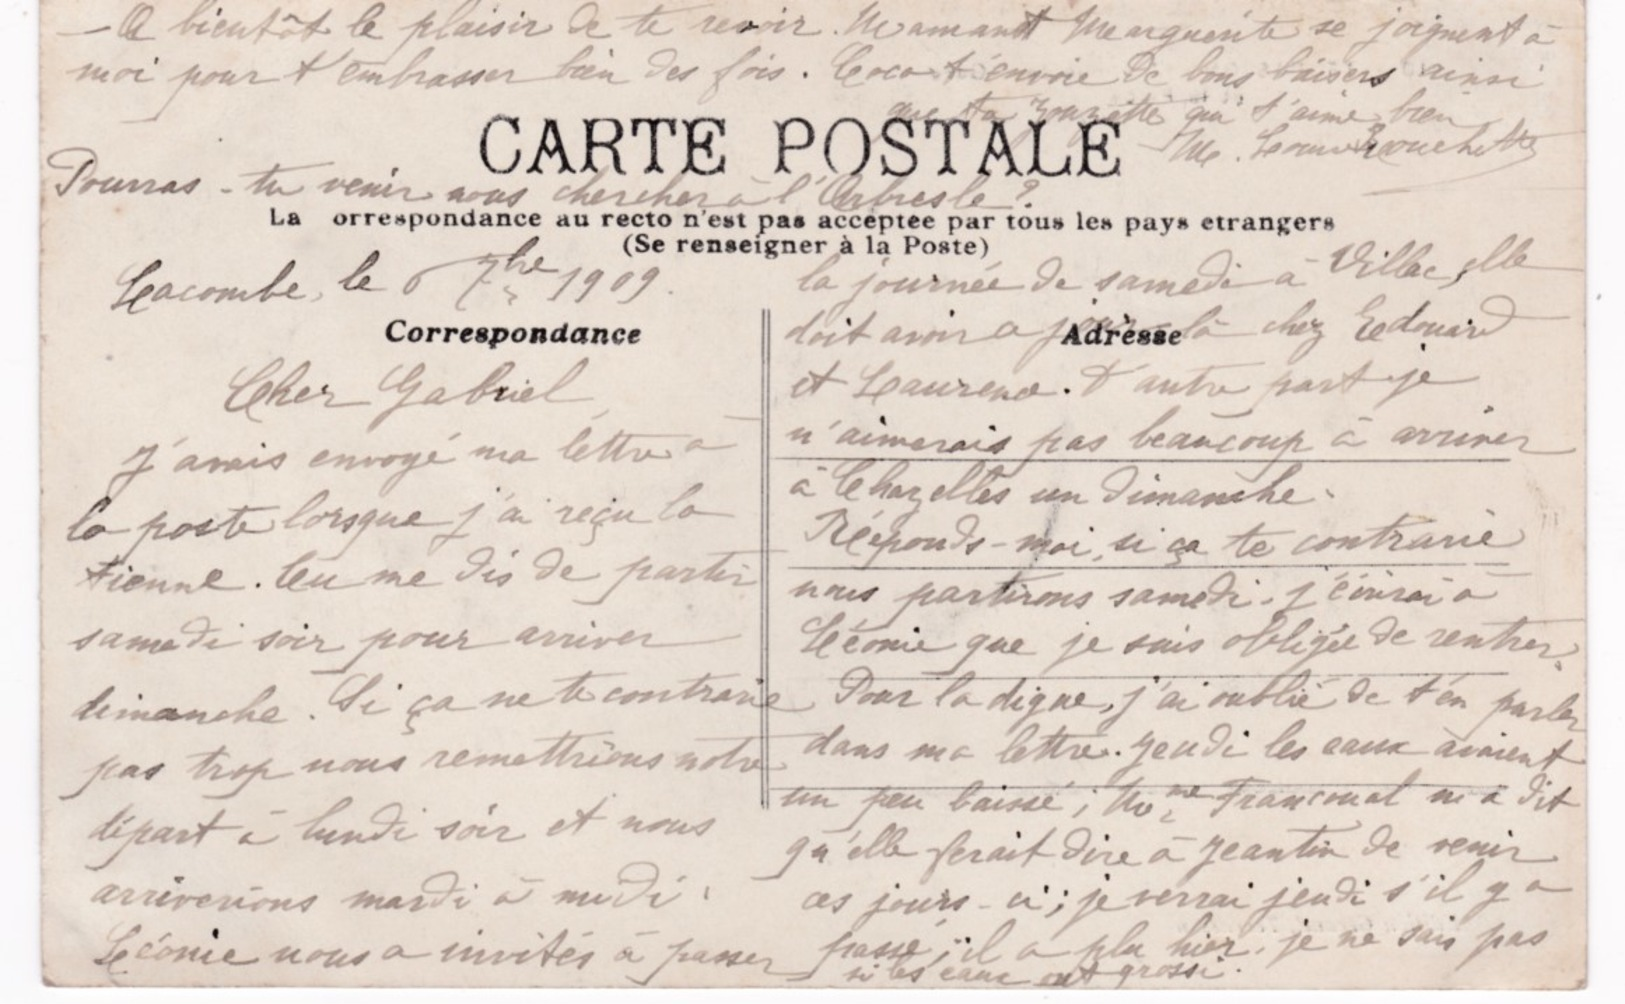 — A bientôt le plaisir de te revoir. Maman et Marguerite se joignent à
moi pour t'embrasser bien des fois. Coco t'envoie de bons baisers ainsi
que ta qui t'aime bien
M.
CARTE POSTALE
Pourras-tu venir nous chercher à l'Arbresle?
La orrespondance au recto n'est pas acceptee par tous les pays etrangers
(Se renseigner à la Poste)
Lacombe, le 6 7bre 1909.
Correspondance
Cher Gabriel
J'avais envoyé ma lettre à
la poste lorsque j'ai reçu la
tienne. Tu me dis de partir
samedi soir pour arriver
dimanche. Si ça ne te contrarie
pas trop nous remettrions notre
départ à lundi soir et nous
arriverions mardi à midi.
Léonie nous a invités à passer
la journée de samedi à Villac, elle
doit avoir là chez Edouard
Adresse
et Laurence. D'autre part je
n'aimerais pas beaucoup à arriver
à Chazelles un dimanche.
Réponds-moi, si ça te contrarie
nous partirons samedi. j'écrirai à
Léonie que je suis obligée de rentrer.
Pour la digue, j'ai oublié de t'en parler
dans ma lettre. Jeudi les eaux avaient
un peu baissé; Mme m'a dit
qu'elle ferait dire à Jeantin de venir
ces jours-ci; je verrai jeudi s'il y a
passé; il a plu hier, je ne sais pas
si les eaux ont grossi.